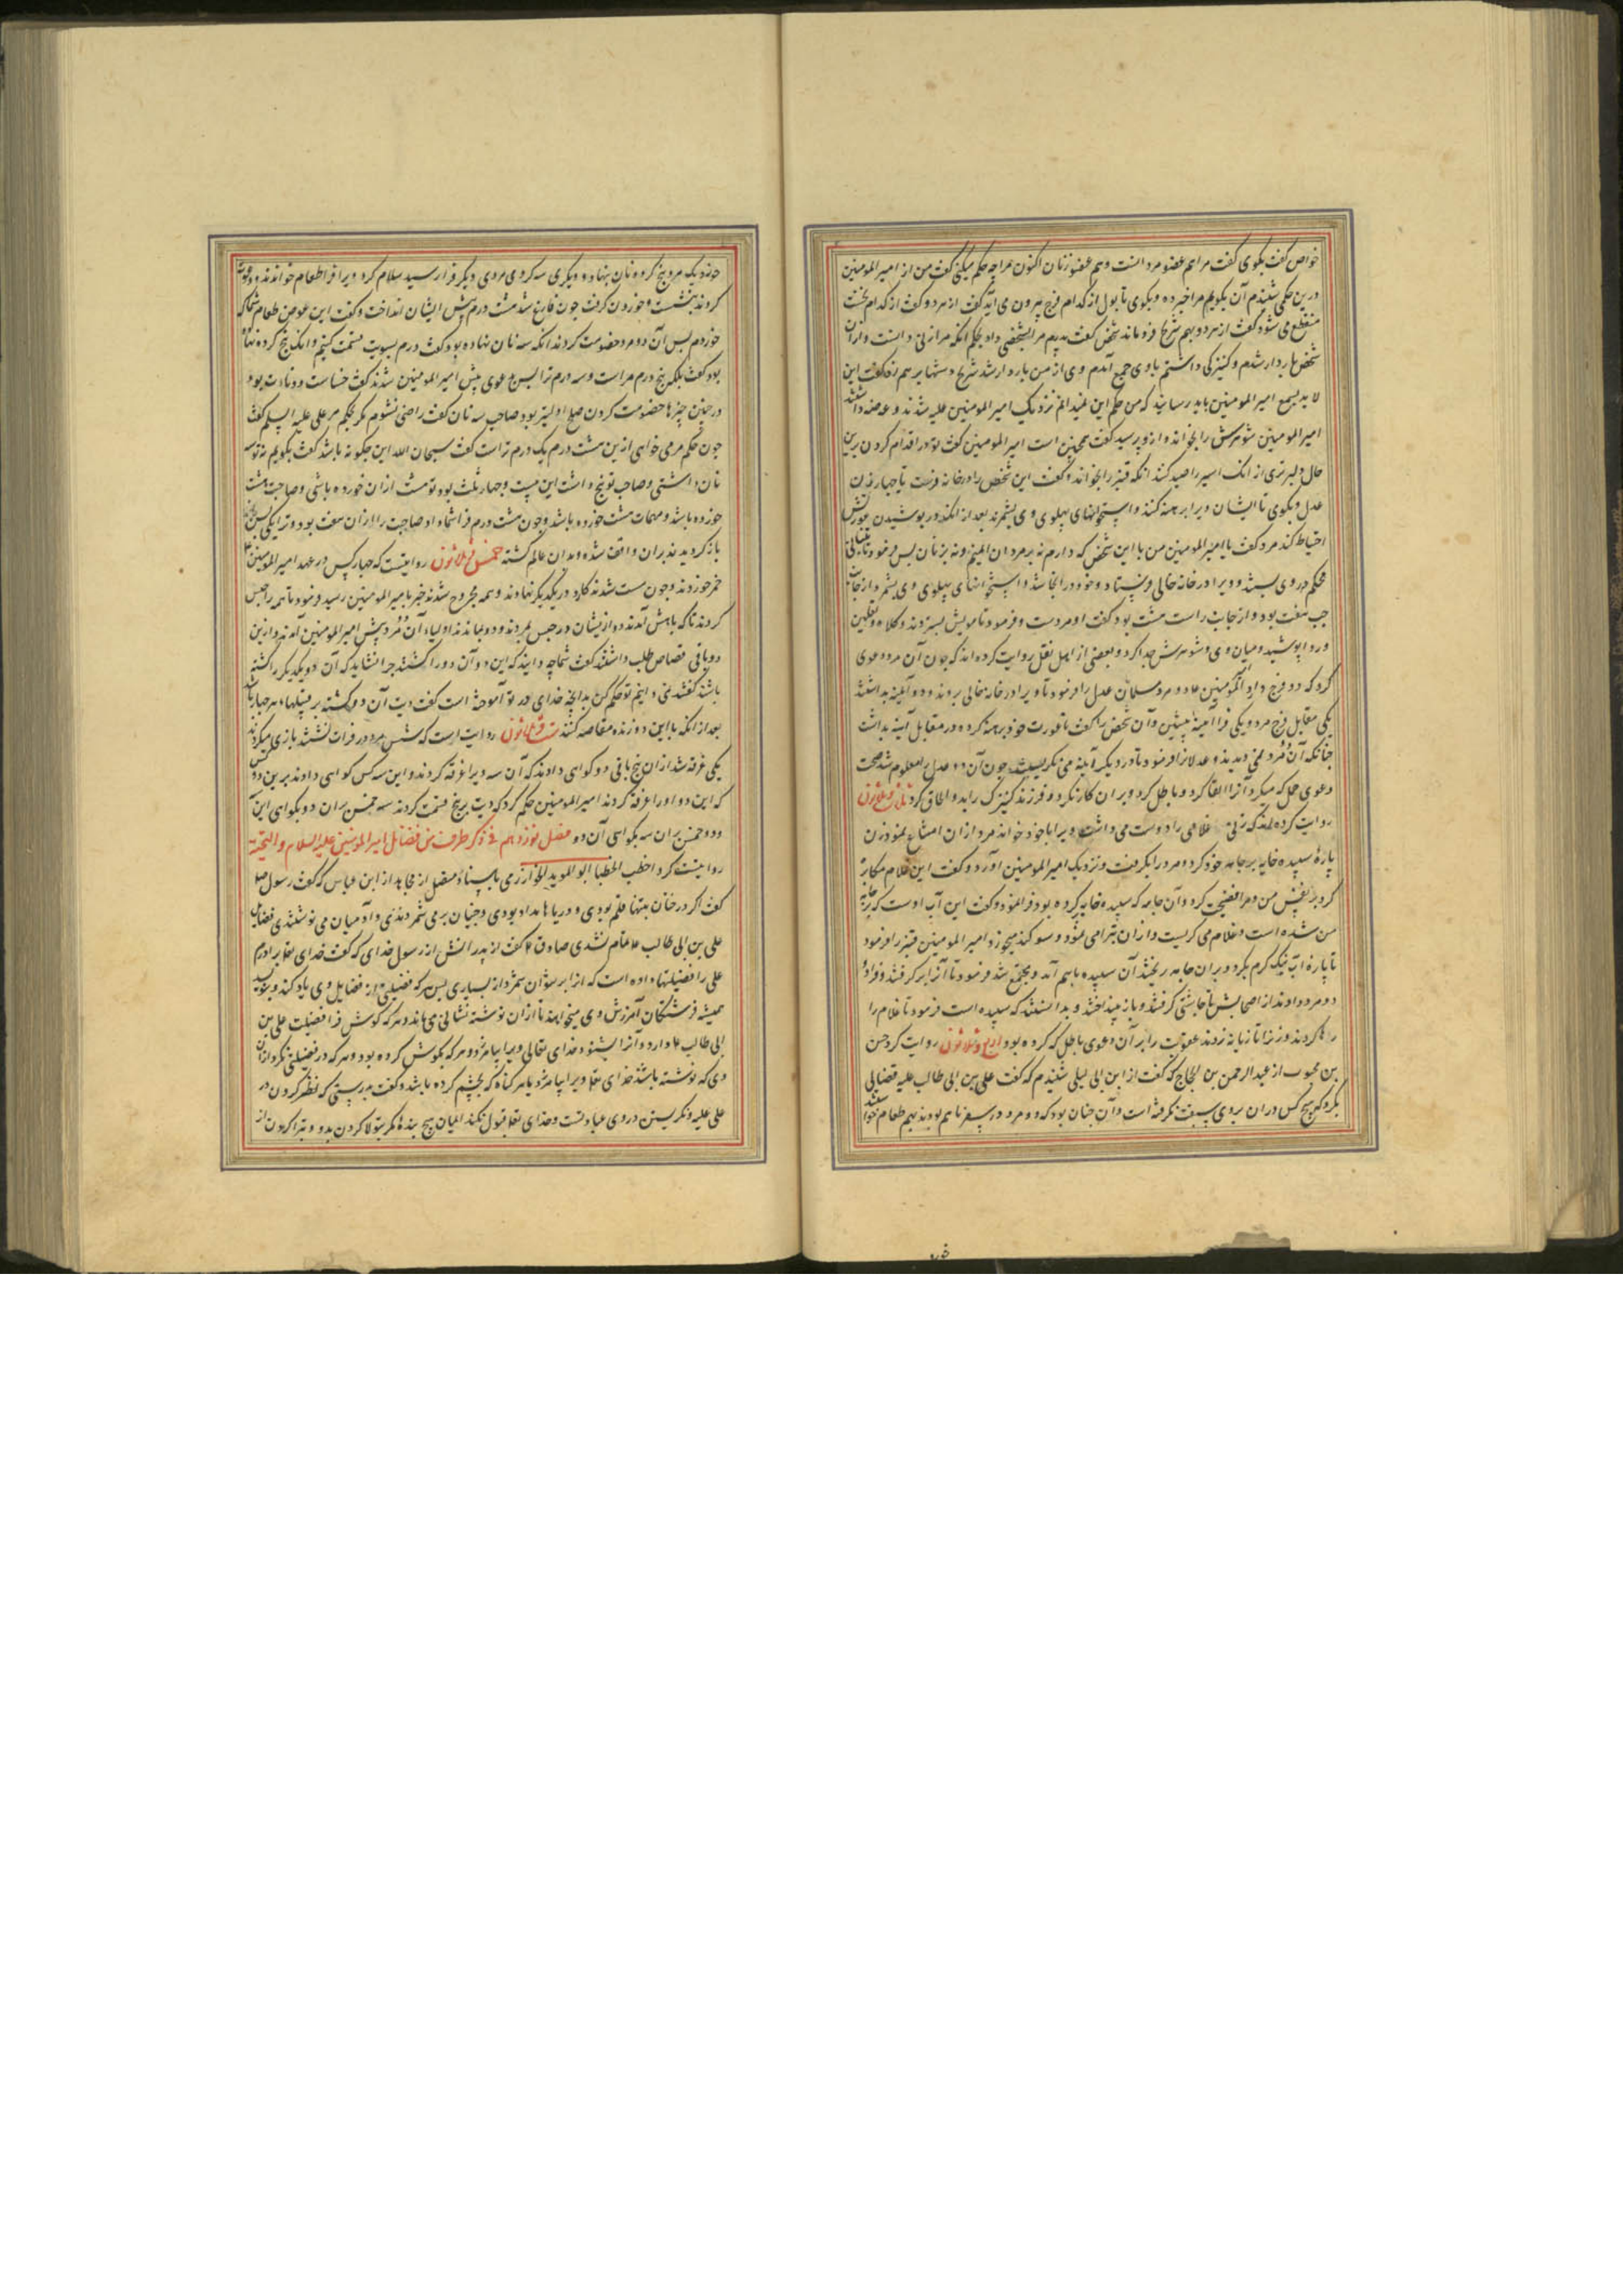 خواص گفت بگوی گفت مرا هم عضو مردانست و هم عضو زنان اکنون مرا چه حکم میکنی گفت من از امیر المومنین
درین حکمی شنیدم آن بگویم مرا خبر ده و بگوی تا بول از کدام فرج بیرون می آید گفت از هر دو گفت از کدام نخست
منقطع می شود گفت از هر دو بهم شریح فرو ماند شخص گفت پدرم مرا بشخصی داد بحکم آنکه مرا زنی دانست و از آن
شخص باردار شدم و کنیزکی داشتم با وی جمع آمدم وی از من باردار شد شریح دستها بر هم زد گفت این
لابد بسمع امیر المومنین باید رسانید که من حکم این نمیدانم نزدیک امیر المومنین علیه شدند و عرضه داشتند
امیر المومنین شوهرش را بخواند و ازو پرسید گفت همچنین است امیر المومنین گفت تو در اقدام کردن برین
حال دلیرتری از آنک اسیر را صید کند آنکه قنبر را بخواند و گفت این شخص را در خانه فرست با چهار زن
عدل و بگوی تا ایشان ویرا برهنه کنند و استخوانهای پهلوی وی بشمرند بعد از آنکه در پوشیدن عورتش
احتیاط کند مرد گفت یا امیر المومنین من با این شخص که دارم نه بر مردان ایمنم و نه بر زنان پس فرمود تا تبانی
محکم در وی بستند و ویرا در خانه خالی فرستاد و خود در آنجا شد و استخوانهای پهلوی وی بشمرد از جانب
چپ هفت بود و از جانب راست هشت بود گفت او مردست و فرمود تا مویش بستردند و کلاه و نعلین
و ردا پوشید و میان وی و شوهرش جدا کرد و بعضی از اهل نقل روایت کرده اند که چون آن مرد دعوی
کرد که دو فرج دارد امیر المومنین عا دو مرد مسلمان عدل را فرمود تا ویرا در خانه خالی بروند و دو آیینه بداشتند
یکی مقابل فرج مرد و یکی فرا آیینه پیشین و آن شخص را گفت تا عورت خود برهنه کرد و در مقابل آینه بداشت
چنانکه آن مرد نمی دیدند و عدلانرا فرمود تا در دیگر آینه می نگریستند چون آن دو عدل را معلوم شد صحت
دعوی حمل که میکرد آنرا القا کرد و باطل کرد و بر آن کار نکرد و فرزند کنیزک را بدو الحاق کرد ثالث و ثلاثون
روایت کرده اند که زنی غلامی را دوست می داشت ویرا با خود خواند مرد از آن امتناع نمود زن
پاره سپیده خایه بر جامه خود کرد و مرد را بگرفت و نزدیک امیر المومنین آورد و گفت این غلام مکابره
کرد بر نفس من و مرا فضیحت کرد و آن جامه که سپیده خایه کرده بود فرا نمود و گفت این آب اوست که بر جامه
من شده است و غلام می گریست و از آن تبرا می نمود و سوگند میخورد امیر المومنین قنبر را فرمود
تا پاره آب نیک گرم بکرد و بر آن جامه ریختند آن سپیده باهم آمد و مجتمع شد فرمود تا آنرا بر گرفتند و فرا
دو مرد دادند از اصحابش تا چاشنی گرفتند و باز بینداختند و بدانستند که سپیده است فرمود تا غلام را
رها کردند و زنرا تازیانه زدند عقوبت را بر آن دعوی باطل که کرده بود اربع و ثلاثون روایت کرد حسن
بن محبوب از عبد الرحمن بن الحجاج که گفت از ابن ابی لیلی شنیدم که گفت علی بن ابی طالب علیه قضایی
بکرد که هیچ کس در آن بر وی سبقت نگرفته است و آن چنان بود که دو مرد در سفر باهم بودند بهم طعام خواستند
خورد یک مرد پنج گرده نان بنهاد و دیگری سه گردی مردی دیگر فرا رسید سلام کرد ویرا فرا طعام خواندند و دعوت
کردند بنشست و خوردن گرفت چون فارغ شد هشت درم پیش ایشان انداخت و گفت این عوض طعام شما که
خوردم پس آن دو مرد خصومت کردند آنکه سه نان نهاده بود گفت درم بسویت قسمت کنیم و آنک پنج گرده نهاده
بود گفت بلکه پنج درم مراست و سه درم ترا پس بدعوی پیش امیر المومنین شدند گفت خساست و دناءت بود
در چنین چیزها خصومت کردن صلح اولیتر بود صاحب سه نان گفت راضی نشوم مگر بحکم مر علی علیه السلم گفت
چون حکم مر می خواهی ازین هشت درم یک درم تراست گفت سبحان الله این چگونه باشد گفت بگویم نه تو سه
نان داشتی و صاحب تو پنج داشت این بیست و چهار ثلث بود تو هشت از آن خورده باشی و صاحبت هشت
خورده باشد و مهمان هشت خورده باشد و چون هشت درم فرا شما داد صاحبت را از آن هفت بود و ترا یکی پس
باز گردیدند بر آن واقف شده و بدان عالم گشته خمس و ثلاثون روایتست که چهار کس در عهد امیر المومنین
خمر خوردند و چون مست شدند کارد در یکدیگر نهادند و همه مجروح شدند خبر بامیر المومنین رسید فرمود تا همه را حبس
کردند تا که باهش آمدند دو ازیشان در حبس بمردند و دو بماندند اولیاء آن دو مرد پیش امیر المومنین آمدند و ازین
دو باقی قصاص طلب داشتند گفت شما چه دانید که این دو آن دو را کشتند چرا نشاید که آن دو یکدیگر را کشته
باشند گفتند نمی دانیم تو حکم کن بدانچه خدای در تو آموخته است گفت دیت آن دو کشته بر قبیلهاء هر چهار باشد
بعد از آنکه با این دو زنده مقاصه کنند ست و ثلاثون روایت است که شش مرد در فرات نشستند بازی میکردند
یکی غرقه شد از آن پنج باقی دو گواهی دادند که آن سه ویرا غرقه کردند و این سه کس گواهی دادند برین دو کس
که این دو او را غرقه کردند امیر المومنین حکم کرد که دیت بر پنج قسمت کردند سه خمس بر آن دو بگواهی این
و دو خمس بر آن سه بگواهی آن دو فصل نوزدهم فی ذکر طرف من فضائل امیر المومنین علیه السلام و التحیة
روایتست کرد اخطب الخطبا ابو الموید الخوارزمی باسناد مفصل از مجاهد از ابن عباس که گفت رسول صلعم
گفت اگر درختان بتنها قلم بودی و دریاها مداد بودی و جنیان بر می شمردندی و آدمیان می نوشتندی فضایل
علی بن ابی طالب عا تمام نشدی صادق عا گفت از پدرانش از رسول خدای که گفت خدای تعا برادرم
علی را فضیلتها داده است که از ابر نتوان شمرد از بسیاری پس هر که فضیلتی از فضایل وی یاد کند و بنویسد
همیشه فرشتگان آمرزش وی میخواهند تا از آن نوشته نشانی می ماند و هر که گوش فرا فضیلت علی بن
ابی طالب عا دارد و آنرا بشنود خدای تعالی ویرا بیامرزد و هر گناه که بگوش کرده بود و هر که در فضیلتی نگرد از آن
وی که نوشته باشند خدای تعا ویرا بیامرزد بامر گناه که بچشم کرده باشد و گفت بدرستی که نظر کردن در
علی علیه و نگریستن در وی عبادتست و خدای تعا قبول نکند ایمان هیچ بنده مگر بتولا کردن بدو و تبرا کردن از